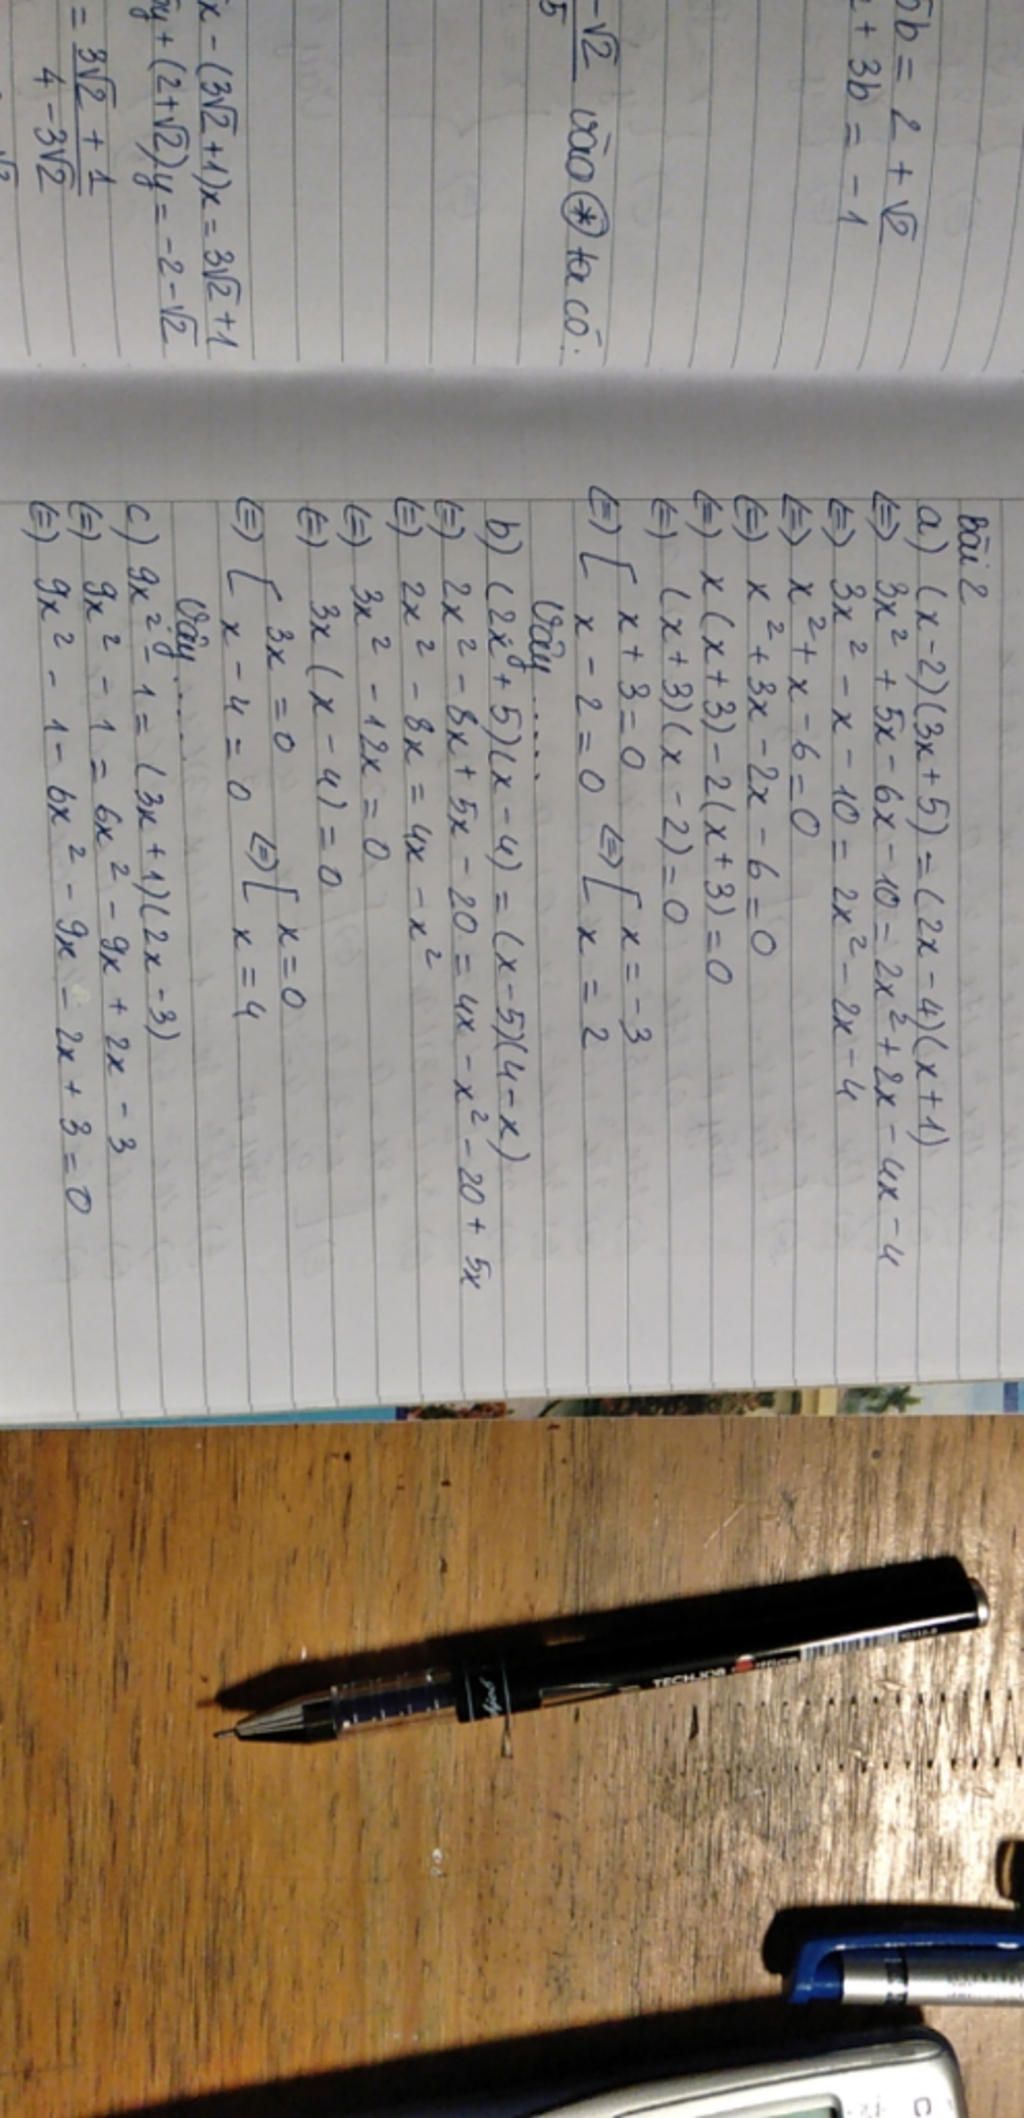 5b = 2 + √2
+ 3b = -1
-√2
5
vào ⊛ ta có:
x - (3√2+1)x = 3√2+1
y + (2+√2)y = -2-√2
= 3√2 + 1
4 - 3√2
Bài 2
a) (x-2)(3x+5) = (2x-4)(x+1)
(=) 3x² + 5x - 6x - 10 = 2x² + 2x - 4x - 4
(=) 3x² - x - 10 = 2x² - 2x - 4
(=) x² + x - 6 = 0
(=) x² + 3x - 2x - 6 = 0
(=) x(x+3) - 2(x+3) = 0
(=) (x+3)(x-2) = 0
(=) [ x+3=0 (=) [ x = -3
x - 2 = 0 x = 2
Vậy.....
b) (2x+5)(x-4) = (x-5)(4-x)
(=) 2x² - 8x + 5x - 20 = 4x - x² - 20 + 5x
(=) 2x² - 8x = 4x - x²
(=) 3x² - 12x = 0
(=) 3x(x-4) = 0
(=) [ 3x = 0 (=) [ x = 0
x - 4 = 0 x = 4
Vậy.....
c) 9x² - 1 = (3x+1)(2x-3)
(=) 9x² - 1 = 6x² - 9x + 2x - 3
(=) 9x² - 1 - 6x² - 9x - 2x + 3 = 0
TECHJOB
C